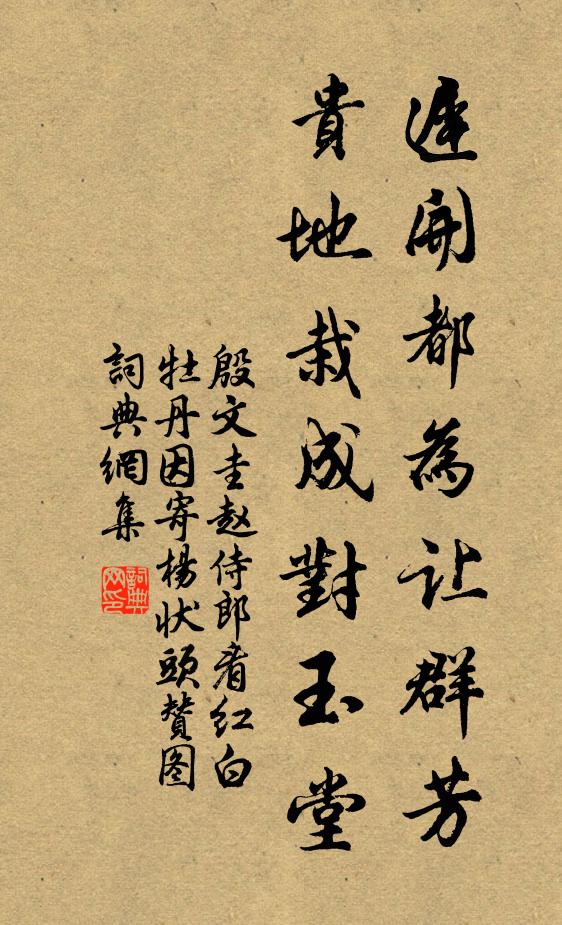 遲開都為让群芳
貴地栽成對玉堂
殷文圭赵侍郎看红白
牡丹因寄楊状頭賛图
詞典網集
詞典网印